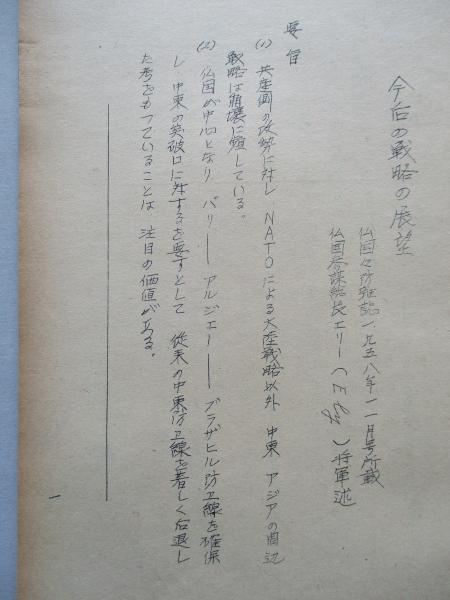 今后の戦略の展望
仏国々防雑誌一九五八年一一月号所載
仏国参謀総長エリー(Ely)将軍述
要旨
(1) 共産側の攻勢に対し NATOによる大陸戦略以外 中東 アジアの周辺
戦略は崩壊に瀕している。
(2) 仏国が中心となり パリー━アルジエー━ブラザヒル防卫線を確保
し 中東の突破口に対するを要すとして 従来の中東防卫線を著しく后退し
た考をもつていることは 注目の価値がある。
一